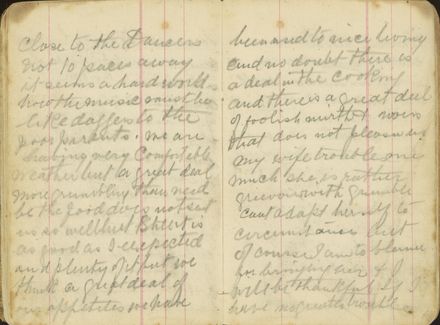 close to the Dancers
not 10 paces away
it seems a hard world
how the music must be
like daggers to the
poor parents. we are
having very Comfortable
weather but a great deal
more grumbling than need
be the food does not suit
us so well but there it is
as good as I expected
and plenty of it but we
think a great deal of
our appetites we have
been used to nice living
and no doubt there is
a deal in the cooking
and there is a great deal
of foolish mirth & noise
that does not please us
my wife trouble me
much she is rather
grievous with grumble
cant adapt herself to
circumstance but
of course I am to blame
for bringing her & I
will be thankful if I
have no greater trouble